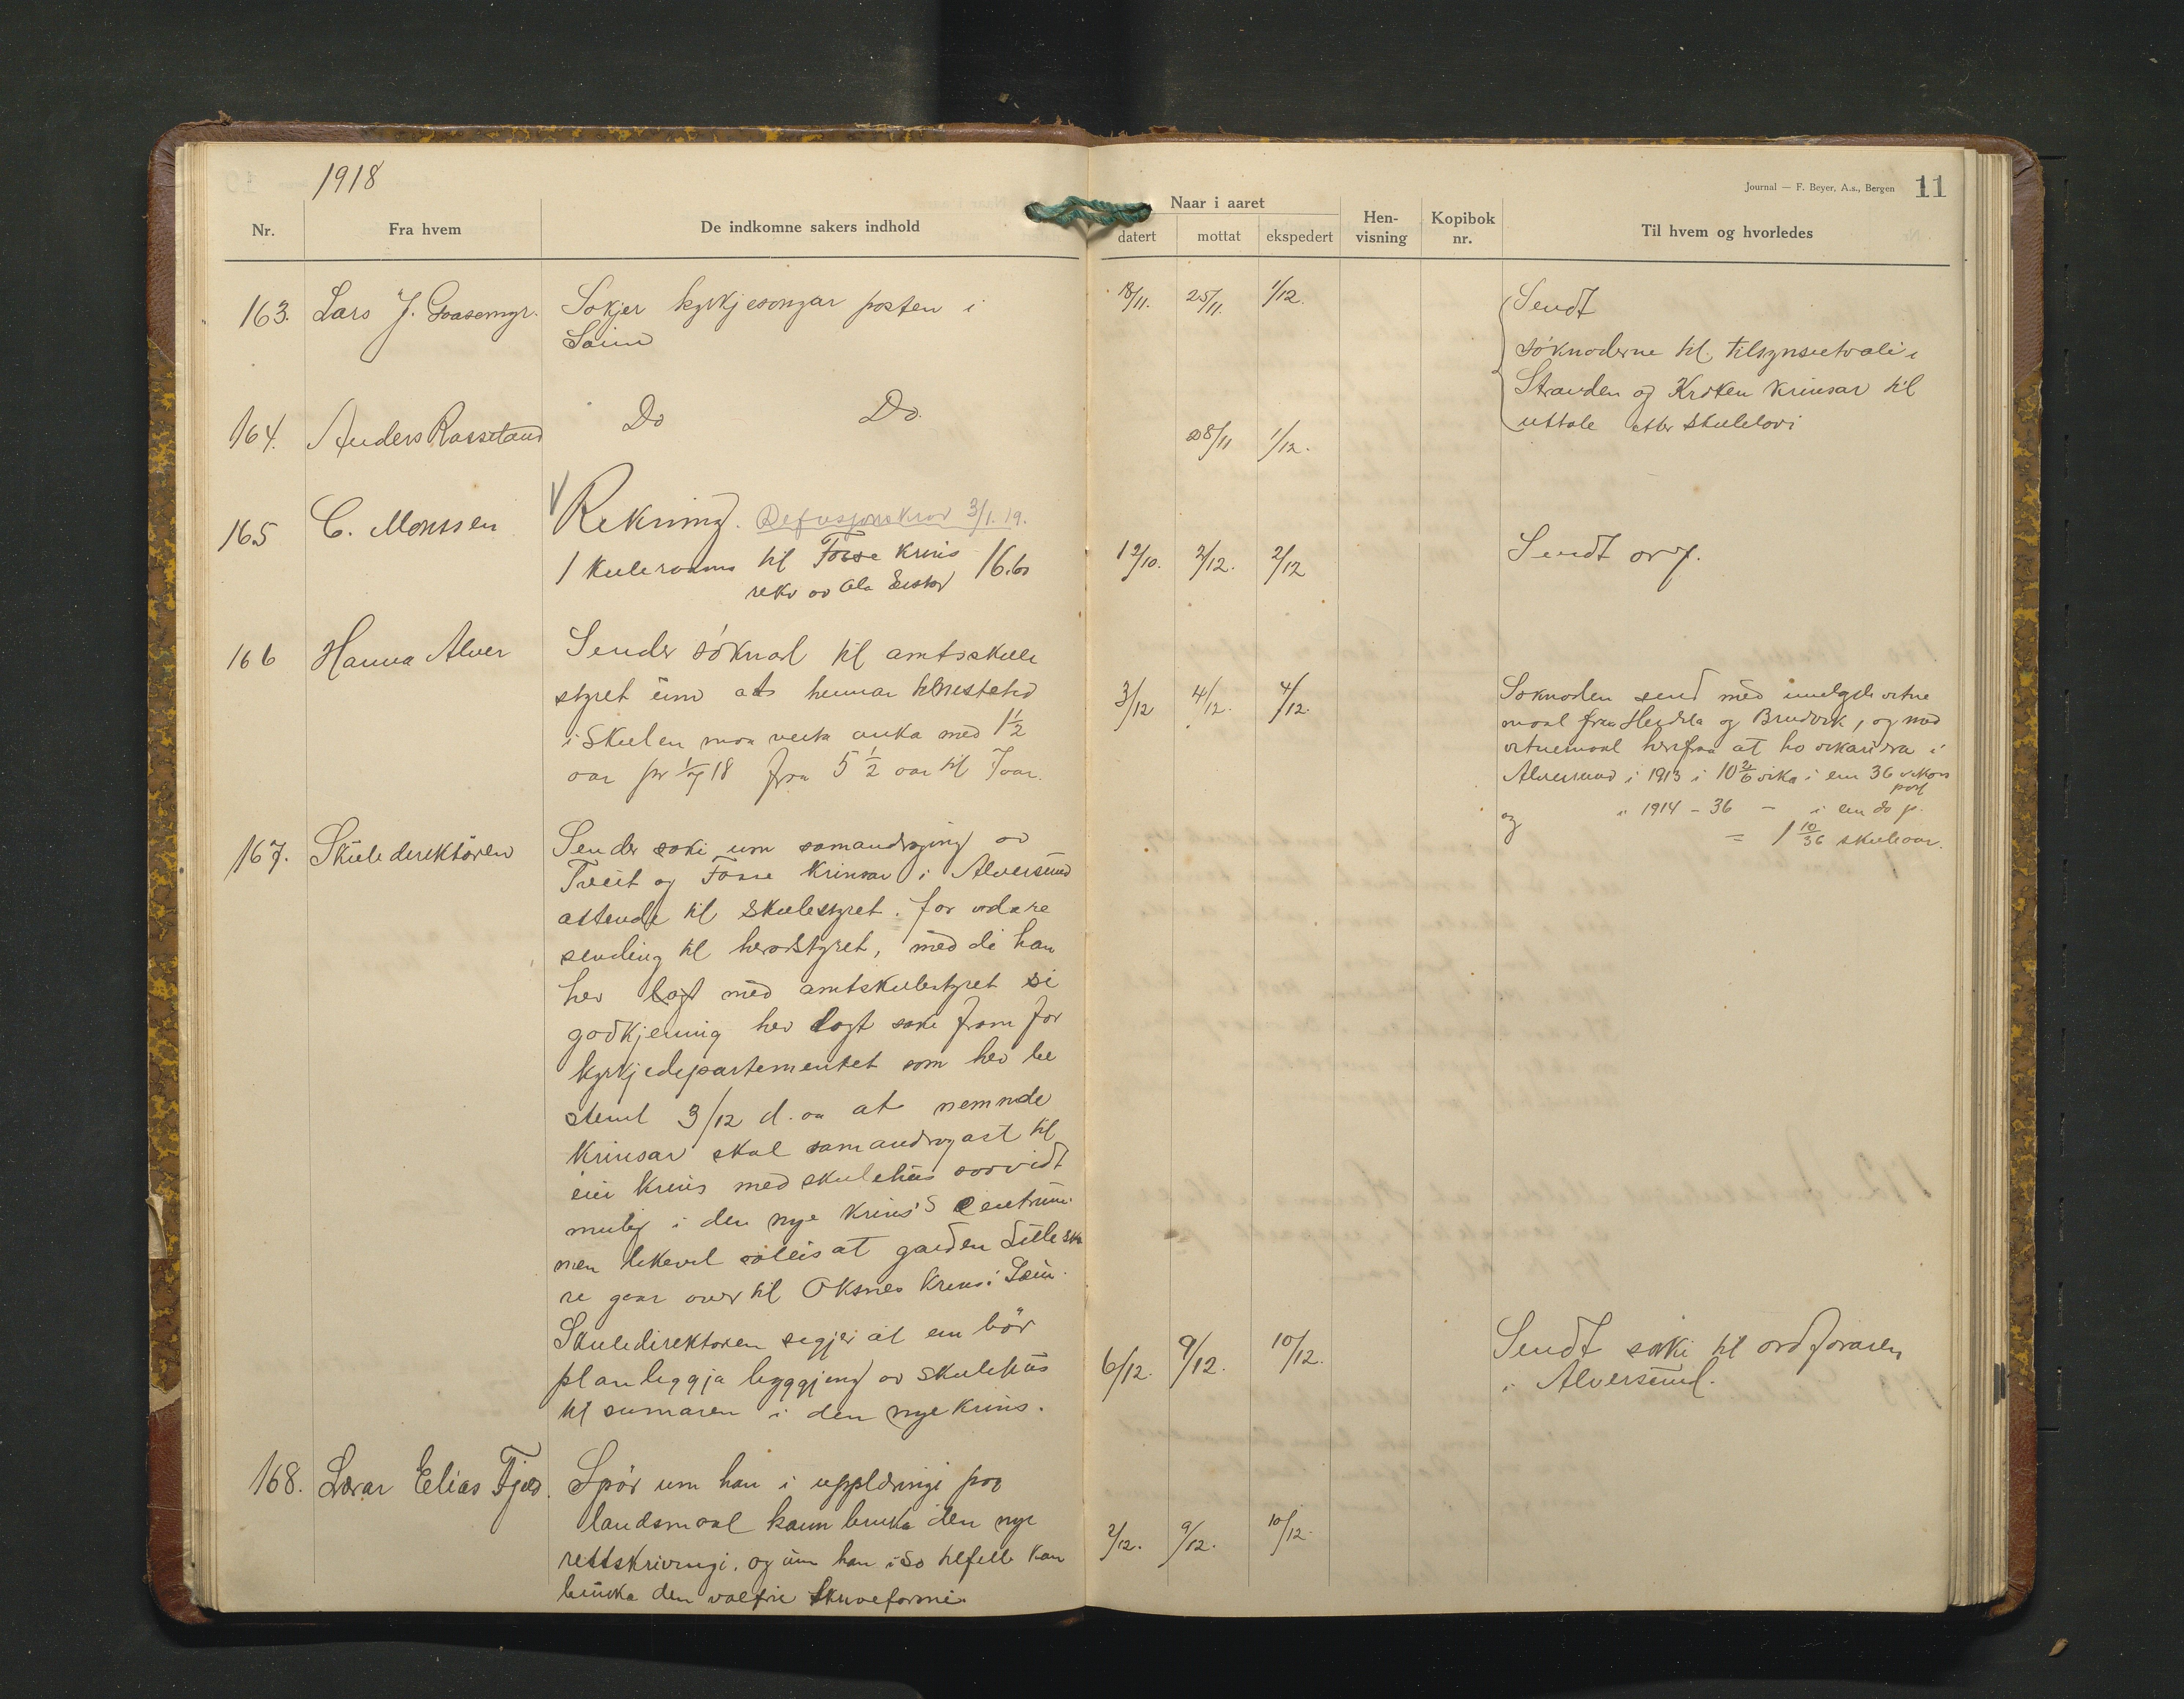 1918
Journal — F. Beyer, A.s., Bergen 11
Nr. Fra hvem De indkomne sakers indhold
Naar i aaret
datert mottat ekspedert Hen-visning Kopibok nr. Til hvem og hvorledes
163. Lars J. Gaasemyr. Søkjer kyrkjesongar posten i
Sæim
18/11. 25/11. 1/12.
Sendt
søknaderne til tilsynsutvali i
Stranden og Kroken krinsar til
uttale etter skulelovi
164. Anders Rassetand Do Do.
28/11 1/12.
165 C. Monssen Rekning. Refusjonskrav 3/1. 19.
1 kuleramme til Fosse krins
rekv av Ola Eustav 16.60
12/10. 2/12. 2/12 Sendt ordf.
166 Hanna Alver Sender søknad til amtsskule
styret um at hennar tenestetid
i skulen maa verta auka med 1 1/2
aar pr 1/7 18 fraa 5 1/2 aar til 7 aar.
3/12 4/12. 4/12.
Søknaden send med vitne
maal fraa Herdla og Bruvik, og med
vitnemaal herifraa at ho vikariera i
Alversund i 1913 i 10 2/6 vika i ein 36 vikors
post
og i 1914 - 36 - i ein do p.
= 1 10/36 skuleaar.
167. Skuledirektøren Sender saki um samandraging av
Tveit og Fosse krinsar i Alversund
attende til skulestyret. for vidare
sending til heradstyret, med di han
hev lagt med amtskulestyret si
godkjenning hev lagt saki fram for
kyrkjedepartementet som hev be
stemt 3/12 d. aa at nemnde
krinsar skal samandragast til
ein krins med skulehus saavidt
mulig i den nye krins's centrum.
men likevel soleis at garden Litleska
re gaar over til Oksnes krins i Sæim.
Skuledirektøren segjer at ein bør
planleggja byggjing av skulehus
til sumaren i den nye krins.
6/12. 9/12. 10/12.
Sendt saki til ordføraren
i Alversund.
168. Lærar Elias Fjæs. Spør um han i upplæringi paa
landsmaal kann bruka den nye
rettskrivingi. og um han i so tilfelle kan
bruka den valfrie skriveformi.
2/12. 9/12. 10/12.